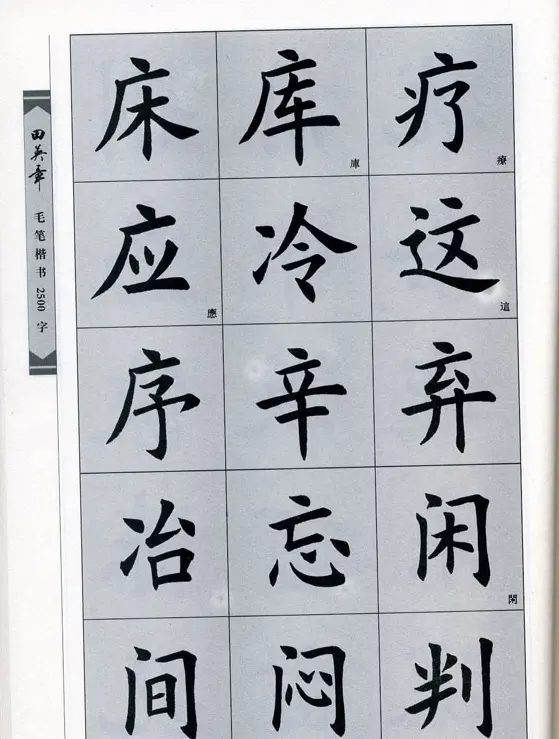 田英章
毛笔楷书2500字
床 库 庫 疗 療
应 應 冷 这 這
序 辛 弃
冶 忘 闲 閑
间 闷 判